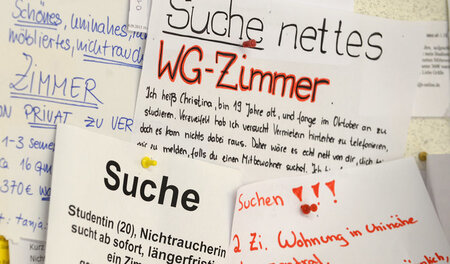 Schönes, uninahes,
möbliertes, nichtrauch
ZIMMER
ON PRIVAT ZU VER
1-3 seme
ca 16 qm
370 €
Suche nettes
WG-Zimmer
Ich heiß Christina, bin 19 Jahre alt, und fange im Oktober an zu
studieren. Verzweifelt hab ich versucht Vermietern hinterher zu telefonieren,
doch es kam nichts dabei raus. Daher wäre es echt nett von dir, dich
zu melden, falls du einen Mitbewohner suchst. Ich
Suche
Studentin (20), Nichtraucherin
sucht ab sofort, längerfristi
ein Zim
Suchen !!!
2 Zi. Wohnung in Uninähe
Kurz